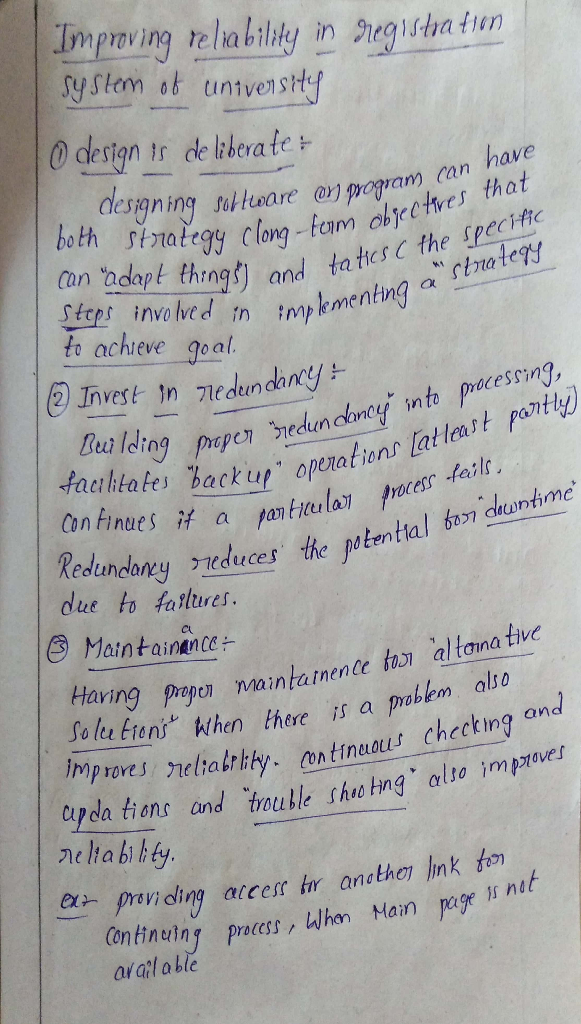 Improving reliability in registration
system of university
① design is deliberate :-
designing software (or) program can have
both strategy (long-term objectives that
can "adapt things") and tatics ( the specific
steps involved in implementing a" strategy
to achieve goal.
② Invest in redundancy :-
Building proper "redundancy" into processing,
facilitates "backup" operations [atleast partly)
continues if a particular process fails.
Redundancy reduces the potential for "downtime"
due to failures.
③ Maintainance :-
Having proper maintainence for "alternative
solutions" when there is a problem also
improves reliability. continuous checking and
updations and "trouble shooting" also improves
reliability.
ex:- providing access for another link for
continuing process, when Main page is not
available